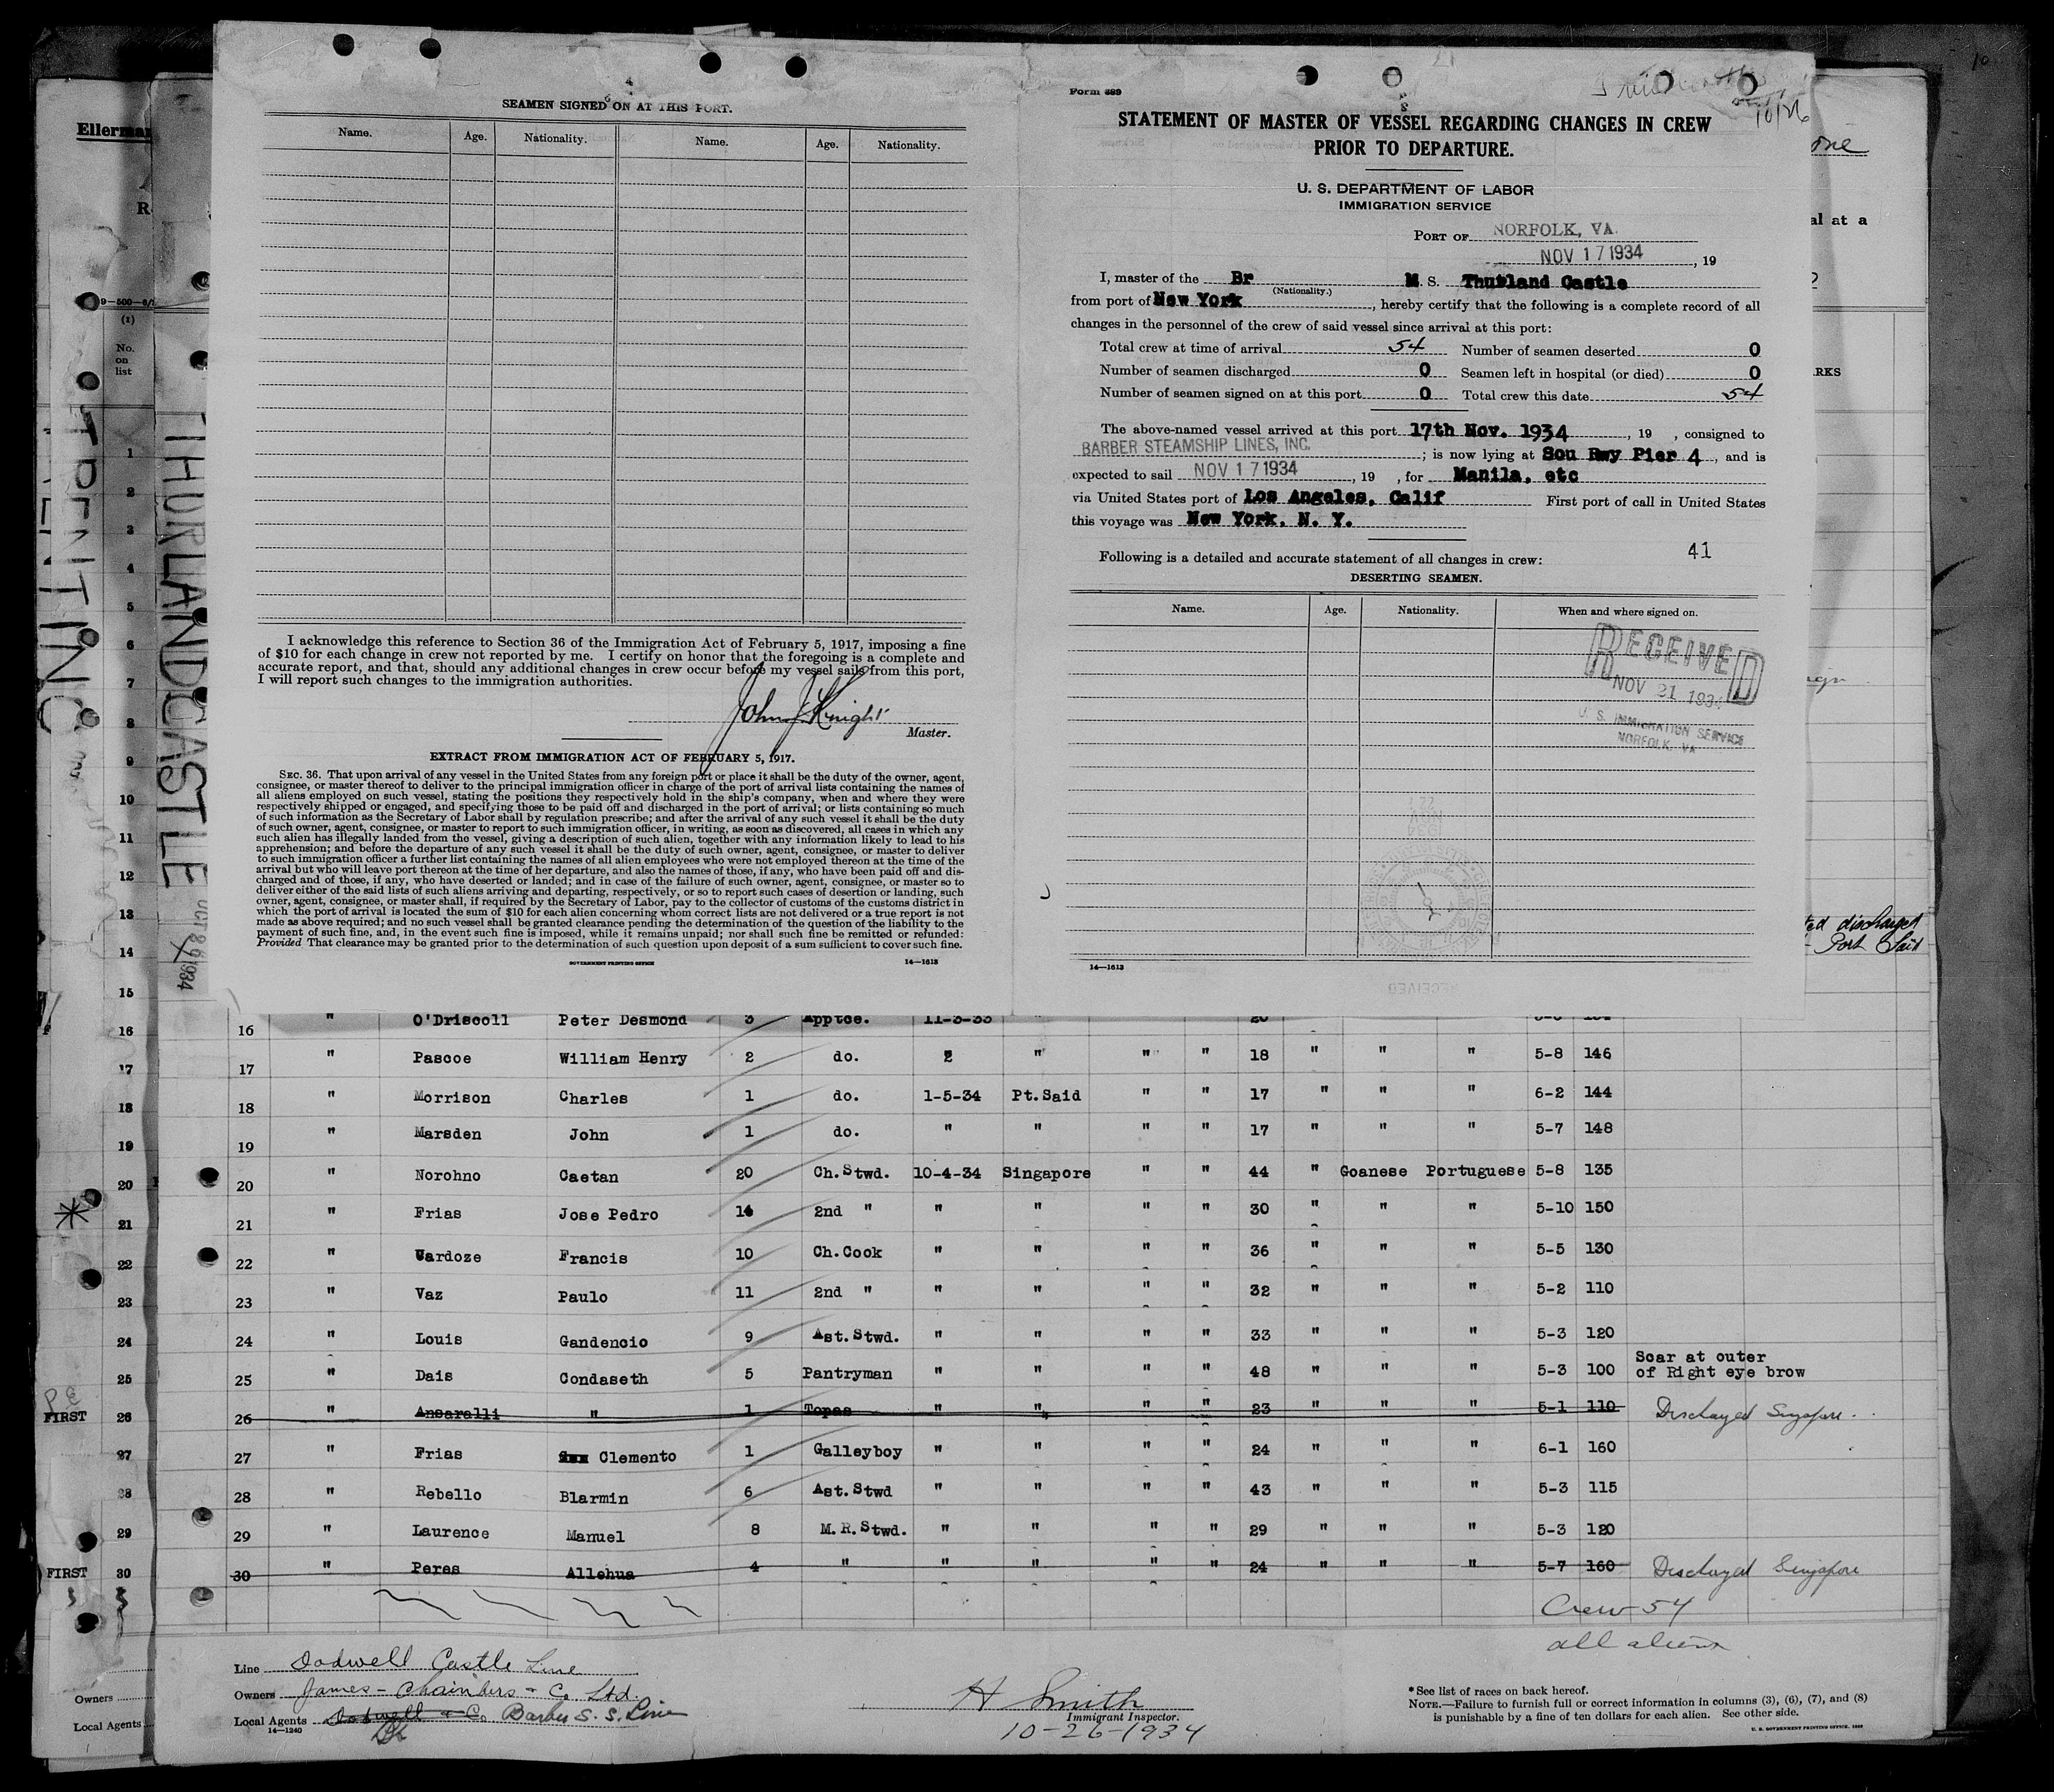 SEAMEN SIGNED ON AT THIS PORT.
Name. Age. Nationality. Name. Age. Nationality.
I acknowledge this reference to Section 36 of the Immigration Act of February 5, 1917, imposing a fine
of $10 for each change in crew not reported by me. I certify on honor that the foregoing is a complete and
accurate report, and that, should any additional changes in crew occur before my vessel sails from this port,
I will report such changes to the immigration authorities.
John J Knight
Master.
EXTRACT FROM IMMIGRATION ACT OF FEBRUARY 5, 1917.
SEC. 36. That upon arrival of any vessel in the United States from any foreign port or place it shall be the duty of the owner, agent,
consignee, or master thereof to deliver to the principal immigration officer in charge of the port of arrival lists containing the names of
all aliens employed on such vessel, stating the positions they respectively hold in the ship's company, when and where they were
respectively shipped or engaged, and specifying those to be paid off and discharged in the port of arrival; or lists containing so much
of such information as the Secretary of Labor shall by regulation prescribe; and after the arrival of any such vessel it shall be the duty
of such owner, agent, consignee, or master to report to such immigration officer, in writing, as soon as discovered, all cases in which any
such alien has illegally landed from the vessel, giving a description of such alien, together with any information likely to lead to his
apprehension; and before the departure of any such vessel it shall be the duty of such owner, agent, consignee, or master to deliver
to such immigration officer a further list containing the names of all alien employees who were not employed thereon at the time of the
arrival but who will leave port thereon at the time of her departure, and also the names of those, if any, who have been paid off and dis-
charged and of those, if any, who have deserted or landed; and in case of the failure of such owner, agent, consignee, or master so to
deliver either of the said lists of such aliens arriving and departing, respectively, or so to report such cases of desertion or landing, such
owner, agent, consignee, or master shall, if required by the Secretary of Labor, pay to the collector of customs of the customs district in
which the port of arrival is located the sum of $10 for each alien concerning whom correct lists are not delivered or a true report is not
made as above required; and no such vessel shall be granted clearance pending the determination of the question of the liability to the
payment of such fine, and, in the event such fine is imposed, while it remains unpaid; nor shall such fine be remitted or refunded:
Provided That clearance may be granted prior to the determination of such question upon deposit of a sum sufficient to cover such fine.
GOVERNMENT PRINTING OFFICE 14—1613
Form 689
10/26
STATEMENT OF MASTER OF VESSEL REGARDING CHANGES IN CREW
PRIOR TO DEPARTURE.
U. S. DEPARTMENT OF LABOR
IMMIGRATION SERVICE
PORT OF NORFOLK, VA.
NOV 17 1934, 19
I, master of the Br M. S. Thurland Castle
(Nationality.)
from port of New York, hereby certify that the following is a complete record of all
changes in the personnel of the crew of said vessel since arrival at this port:
Total crew at time of arrival 54 Number of seamen deserted 0
Number of seamen discharged 0 Seamen left in hospital (or died) 0
Number of seamen signed on at this port 0 Total crew this date 54
The above-named vessel arrived at this port 17th Nov. 1934, 19 , consigned to
BARBER STEAMSHIP LINES, INC.; is now lying at Sou Rwy Pier 4, and is
expected to sail NOV 17 1934, 19 , for Manila, etc
via United States port of Los Angeles, Calif First port of call in United States
this voyage was New York, N. Y.
41
Following is a detailed and accurate statement of all changes in crew:
DESERTING SEAMEN.
Name. Age. Nationality. When and where signed on.
RECEIVED
NOV 21 1934
U. S. IMMIGRATION SERVICE
NORFOLK, VA
14—1613
Ellerman
9—500—6/
(1)
No.
on
list
TRENTINO
THURLAND CASTLE
OCT 26 1934
al at a
RKS
ted discharged
Port Said
1
2
3
4
5
6
7
8
9
10
11
12
13
14
15
16
17
18
19
20
21
22
23
24
25
FIRST 26
27
28
29
FIRST 30
16 " O'Driscoll Peter Desmond 3 Apptce. 11-3-33 " 20
17 " Pascoe William Henry 2 do. 2 " " " 18 " " " 5-8 146
18 " Morrison Charles 1 do. 1-5-34 Pt.Said " " 17 " " " 6-2 144
19 " Marsden John 1 do. " " " " 17 " " " 5-7 148
20 " Norohno Caetan 20 Ch.Stwd. 10-4-34 Singapore " " 44 " Goanese Portuguese 5-8 135
21 " Frias Jose Pedro 14 2nd " " " " " 30 " " " 5-10 150
22 " Vardoze Francis 10 Ch.Cook " " " " 36 " " " 5-5 130
23 " Vaz Paulo 11 2nd " " " " " 32 " " " 5-2 110
24 " Louis Gandencio 9 Ast.Stwd. " " " " 33 " " " 5-3 120
25 " Dais Condaseth 5 Pantryman " " " " 48 " " " 5-3 100 Scar at outer
of Right eye brow
26 " Ansaralli " 1 Topas " " " " 23 " " " 5-1 110 Discharged Singapore.
27 " Frias Clemento 1 Galleyboy " " " " 24 " " " 6-1 160
28 " Rebello Blarmin 6 Ast.Stwd " " " " 43 " " " 5-3 115
29 " Laurence Manuel 8 M.R.Stwd. " " " " 29 " " " 5-3 120
30 " Peres Allehua 4 " " " " " 24 " " " 5-7 160 Discharged Singapore
Crew 54
all aliens
Line Dodwell Castle Line
Owners James - Chambers & Co Ltd.
Local Agents Dodwell & Co Barber S. S. Line
14—1240
H Smith
Immigrant Inspector.
10-26-1934
*See list of races on back hereof.
NOTE.—Failure to furnish full or correct information in columns (3), (6), (7), and (8)
is punishable by a fine of ten dollars for each alien. See other side.
U. S. GOVERNMENT PRINTING OFFICE
Owners
Local Agents